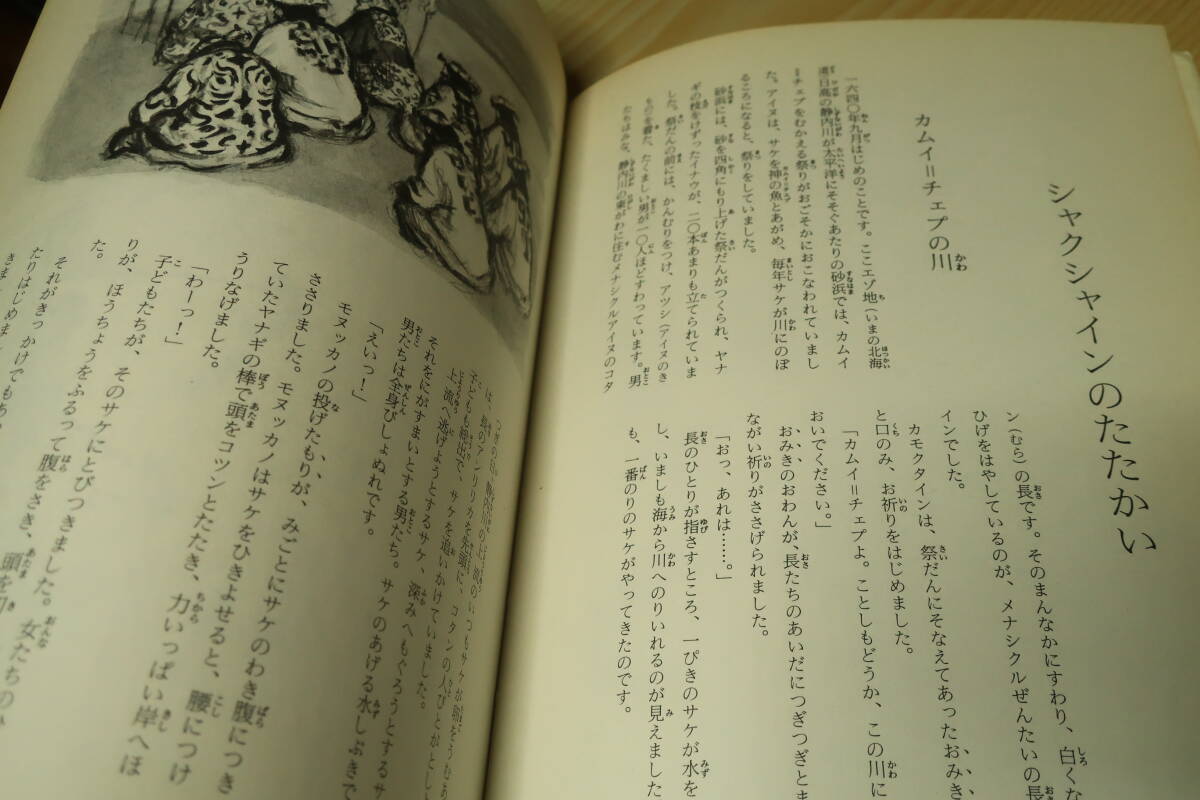 シャクシャインのたたかい
カムイ＝チェプの川
一六四〇年九月はじめのことです。ここエゾ地（いまの北海
道）日高の静内川が太平洋にそそぐあたりの砂浜では、カムイ
＝チェプをむかえる祭りがおごそかにおこなわれていまし
た。アイヌは、サケを神の魚とあがめ、毎年サケが川にのぼ
るころになると、祭りをしていました。
砂浜には、砂を四角にもり上げた祭だんがつくられ、ヤナ
ギの枝をけずったイナウが、二〇本あまりも立てられていま
した。祭だんの前には、かんむりをつけ、アツシ（アイヌのき
もの）を着た、たくましい男が一〇人ほどすわっています。男
たちはみな、静内川の東がわに住むメナシクルアイヌのコタ
ン（むら）の長です。そのまんなかにすわり、白くな
ひげをはやしているのが、メナシクルぜんたいの長
インでした。
カモクタインは、祭だんにそなえてあったおみき
と口のみ、お祈りをはじめました。
「カムイ＝チェプよ。ことしもどうか、この川に
おいでください。」
おみきのおわんが、長たちのあいだにつぎつぎとま
ながい祈りがささげられました。
「おっ、あれは……。」
長のひとりが指さすところ、一ぴきのサケが水を
し、いましも海から川へのりいれるのが見えました
も、一番のりのサケがやってきたのです。
は、長のアンリリカを先頭に、コタンの人びとがとし
子どもも総出で、サケを追いかけていました。
上流へ逃げようとするサケ、深みへもぐろうとするサ
それをにがすまいとする男たち。サケのあげる水しぶきで
男たちは全身びしょぬれです。
「えいっ！」
モヌッカノの投げたもりが、みごとにサケのわき腹につき
ささりました。モヌッカノはサケをひきよせると、腰につけ
ていたヤナギの棒で頭をコツンとたたき、力いっぱい岸へほ
うりなげました。
「わーっ！」
子どもたちが、そのサケにとびつきました。女たちの
りが、ほうちょうをふるって腹をさき、頭を
た。
それがきっかけでもあ
たりはじめま
きま